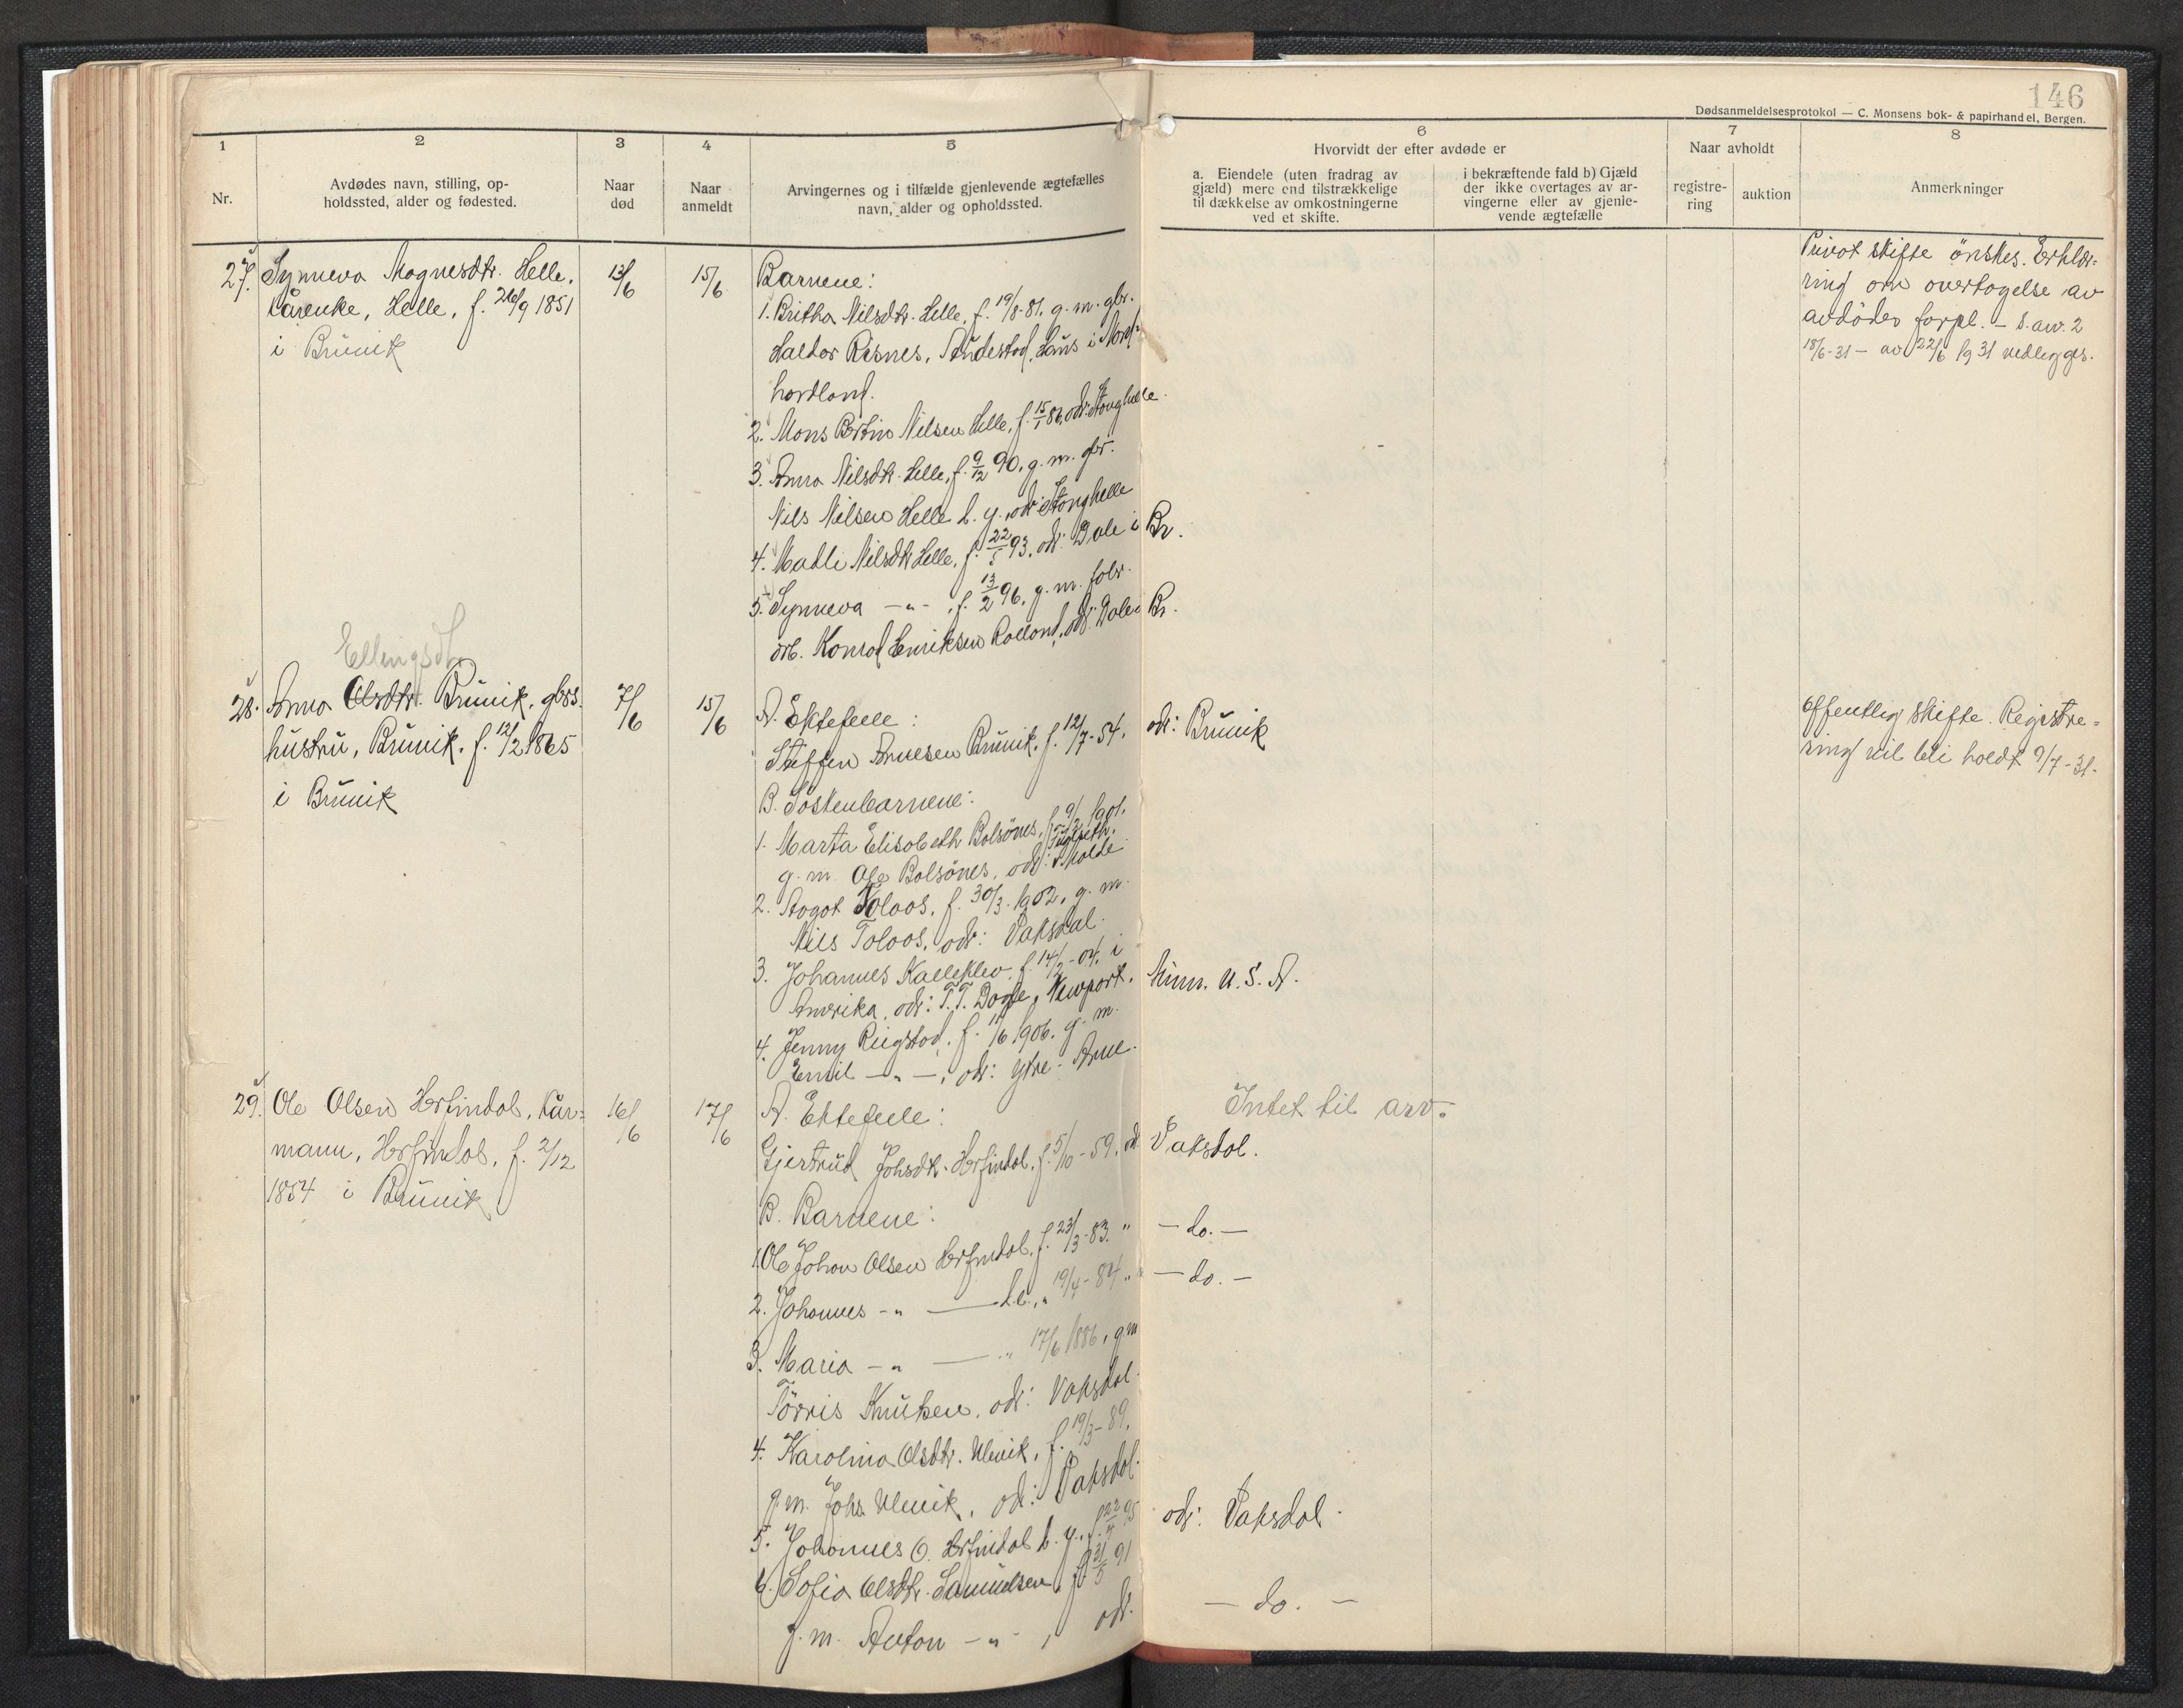 146
Dødsanmeldelsesprotokol — C. Monsens bok- & papirhandel, Bergen.
1
Nr.
2
Avdødes navn, stilling, op-
holdssted, alder og fødested.
3
Naar
død
4
Naar
anmeldt
5
Arvingernes og i tilfælde gjenlevende ægtefælles
navn, alder og opholdssted.
6
Hvorvidt der efter avdøde er
a. Eiendele (uten fradrag av
gjæld) mere end tilstrækkelige
til dækkelse av omkostningerne
ved et skifte.
i bekræftende fald b) Gjæld
der ikke overtages av ar-
vingerne eller av gjenle-
vende ægtefælle
7
Naar avholdt
registre-
ring
auktion
8
Anmerkninger
27. Synneva Magnesdtr. Helle,
kårenke, Helle, f. 26/9 1851
i Brúvik
13/6
15/6
Barnene:
1. Britha Nilsdtr. Helle, f. 19/8-81, g. m. gbr.
Haldor Risnes, Haus i Nord-
hordland.
2. Mons Nilsen Helle, f. 15/1 86, adr: Stanghelle.
3. Anna Nilsdtr. Helle, f. 9/12 90, g. m. gbr.
Nils Nilsen Helle d. y., adr: Stanghelle
4. Madli Nilsdtr. Helle, f. 22/5 93, adr: Dale i Br.
5. Synneva -"- , f. 13/2 96, g. m. fabr.
arb. Konrad Henriksen Rolland, adr: Dale i Br.
Privat skifte önskes. Erklæ-
ring om overtagelse av
avdödes forpl. - S. av. 2
18/6-31 - av 22/6 1931 vedlegges.
Ellingsdtr
28. Anna Olsdtr. Brúvik, gbrs.
hústrú, Brúvik, f. 12/2 1865
i Brúvik
7/6
15/6
A. Ektefelle:
Steffen Arnesen Brúvik, f. 12/7-54, adr: Brúvik
B. Söskenbarnene:
1. Marta Elisabeth Bolsönes, f. 9/2 1901,
g. m. Ole Bolsönes, adr: Fuglseth, Molde
2. Aagot Toloos, f. 30/3-1902, g. m.
Nils Toloos, adr: Vaksdal.
3. Johannes Kalleklev, f. 14/2-04, i
Amerika, adr: T. T. Newport, Minn. U. S. A.
4. Jenny Ringstad, f. 11/6 1906, g. m.
Emil -"-, adr: Ytre-Arne.
Offentlig skifte. Registre-
ring vil bli holdt 9/7-31.
29. Ole Olsen Herfindal, kår-
mann, Herfindal, f. 2/12
1854 i Brúvik
16/6
17/6
A. Ektefelle:
Gjertrud Johsdtr. Herfindal, f. 5/10-59, adr Vaksdal.
Intet til arv.
B. Barnene:
1. Ole Johan Olsen Herfindal, f. 23/3-83. " - do. -
2. Johannes -"- d.e., " 19/4-84 " - do. -
3. Maria -"- " 17/6 1886, g. m
Törris Knútsen, adr: Vaksdal.
4. Karolina Olsdtr. Ulevik, f. 19/3-89,
g. m. Johs Ulevik, adr: Vaksdal.
5. Johannes O. Herfindal d. y., f. 22/4 95 adr: Vaksdal.
6. Sofia Olsdtr. Samúelsen, f. 21/5 91
g. m. Anton -"- , adr. - do. -